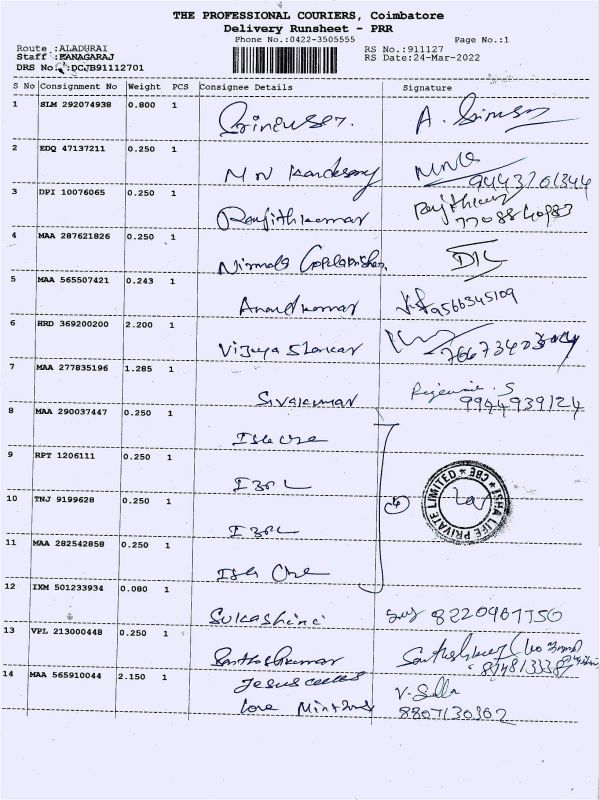 THE PROFESSIONAL COURIERS, Coimbatore
Delivery Runsheet - PRR
Phone No.:0422-3505555 Page No.:1
Route :ALADURAI RS No.:911127
Staff :KANAGARAJ RS Date:24-Mar-2022
DRS No. :DCJB91112701
S No Consignment No Weight PCS Consignee Details Signature
1 SLM 292074938 0.800 1
2 EDQ 47137211 0.250 1 M N 9443701344
3 DPI 10076065 0.250 1 Ranjithkumar
4 MAA 287621826 0.250 1 Nirmala
5 MAA 565507421 0.243 1 Anandkumar 9566345109
6 HRD 369200200 2.200 1 Vijaya Shankar
7 MAA 277835196 1.285 1 Sivakumar S 9944939124
8 MAA 290037447 0.250 1
9 RPT 1206111 0.250 1
10 TNJ 9199628 0.250 1
4 ISHA LIFE PRIVATE LIMITED * CBE *
11 MAA 282542858 0.250 1
12 IXM 501233934 0.080 1 Sukashini 8220967750
13 VPL 213000448 0.250 1 Santhoshkumar
14 MAA 565910044 2.150 1 Jesus V.
Love 8807130302